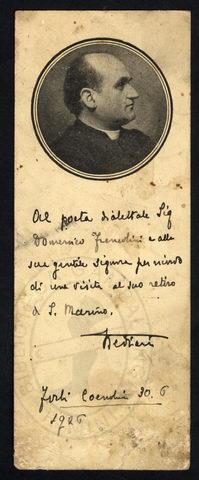 Al poeta dialettale Sig
Domenico e alla
sua gentile signora per ricordo
di una visita al suo retiro
a S. Marino.
Forlì 30. 6
1926